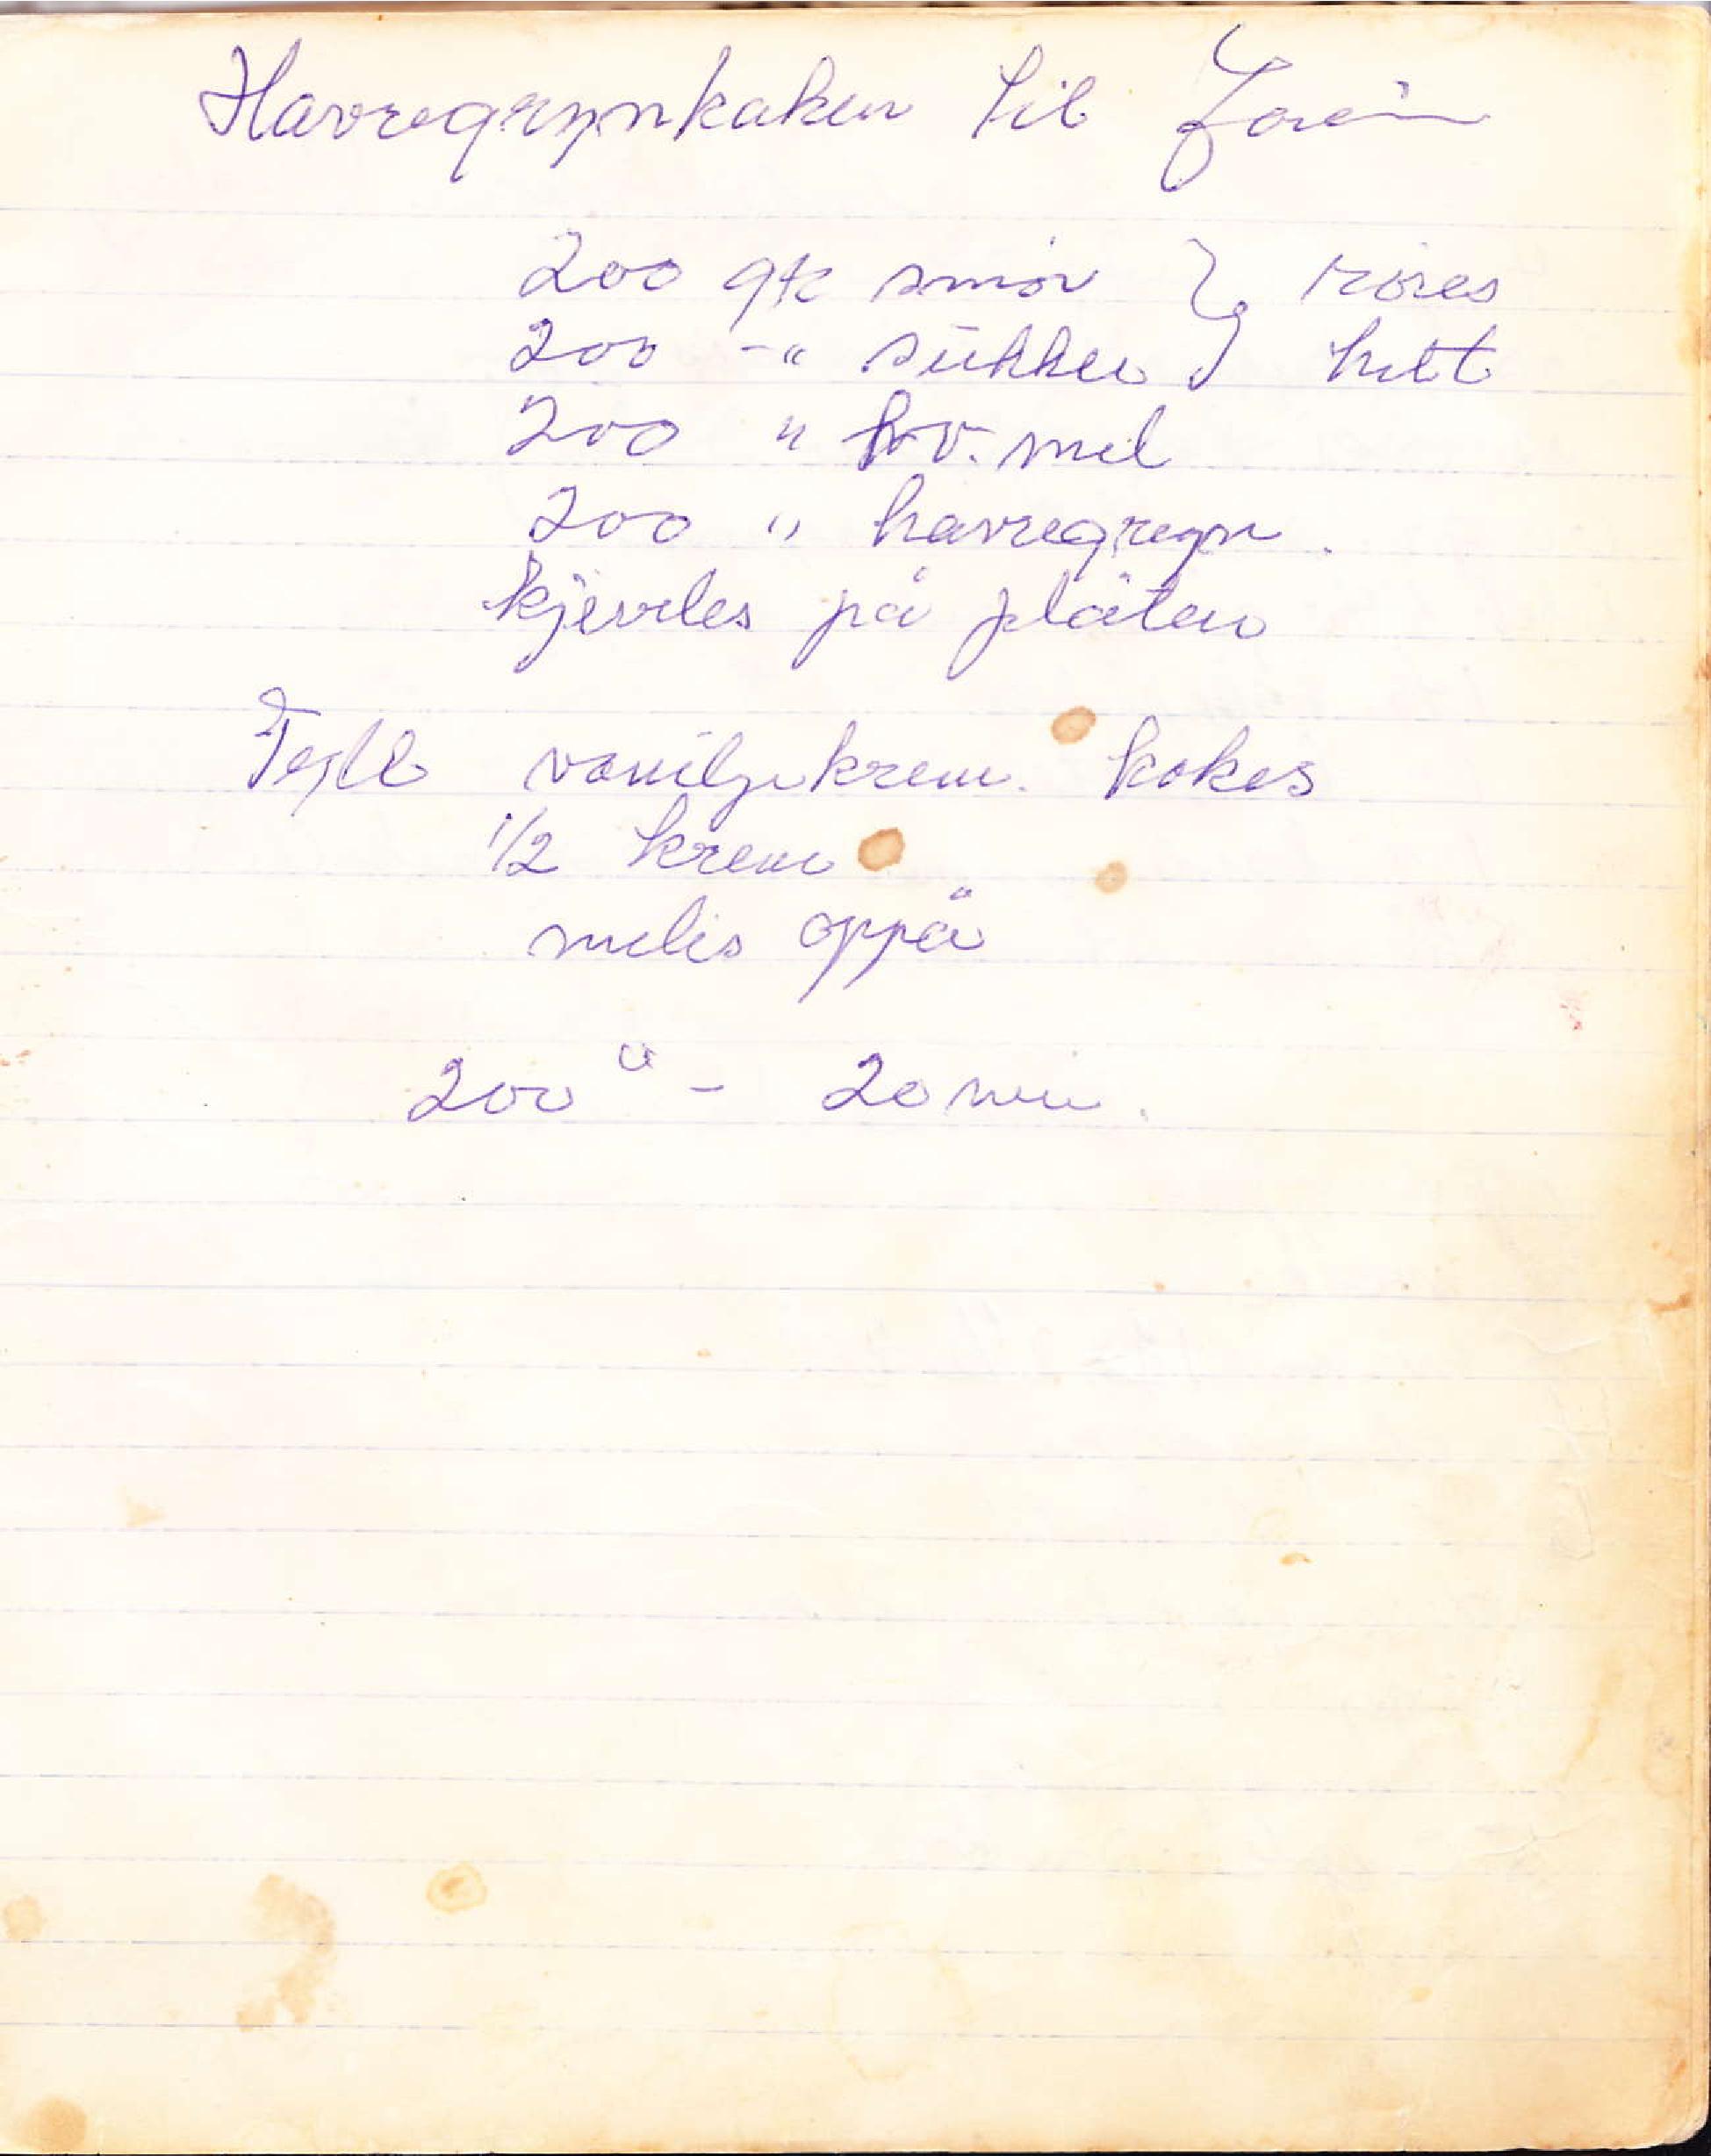 Havregrynkaken til
200 gr smör } röres
200 -" sukker } hvitt
200 " hv. mel
200 " havregryn.
kjevles på platen
Fyll vaniljekrem. kokes
1/2 krem
melis oppå
200° - 20 min.